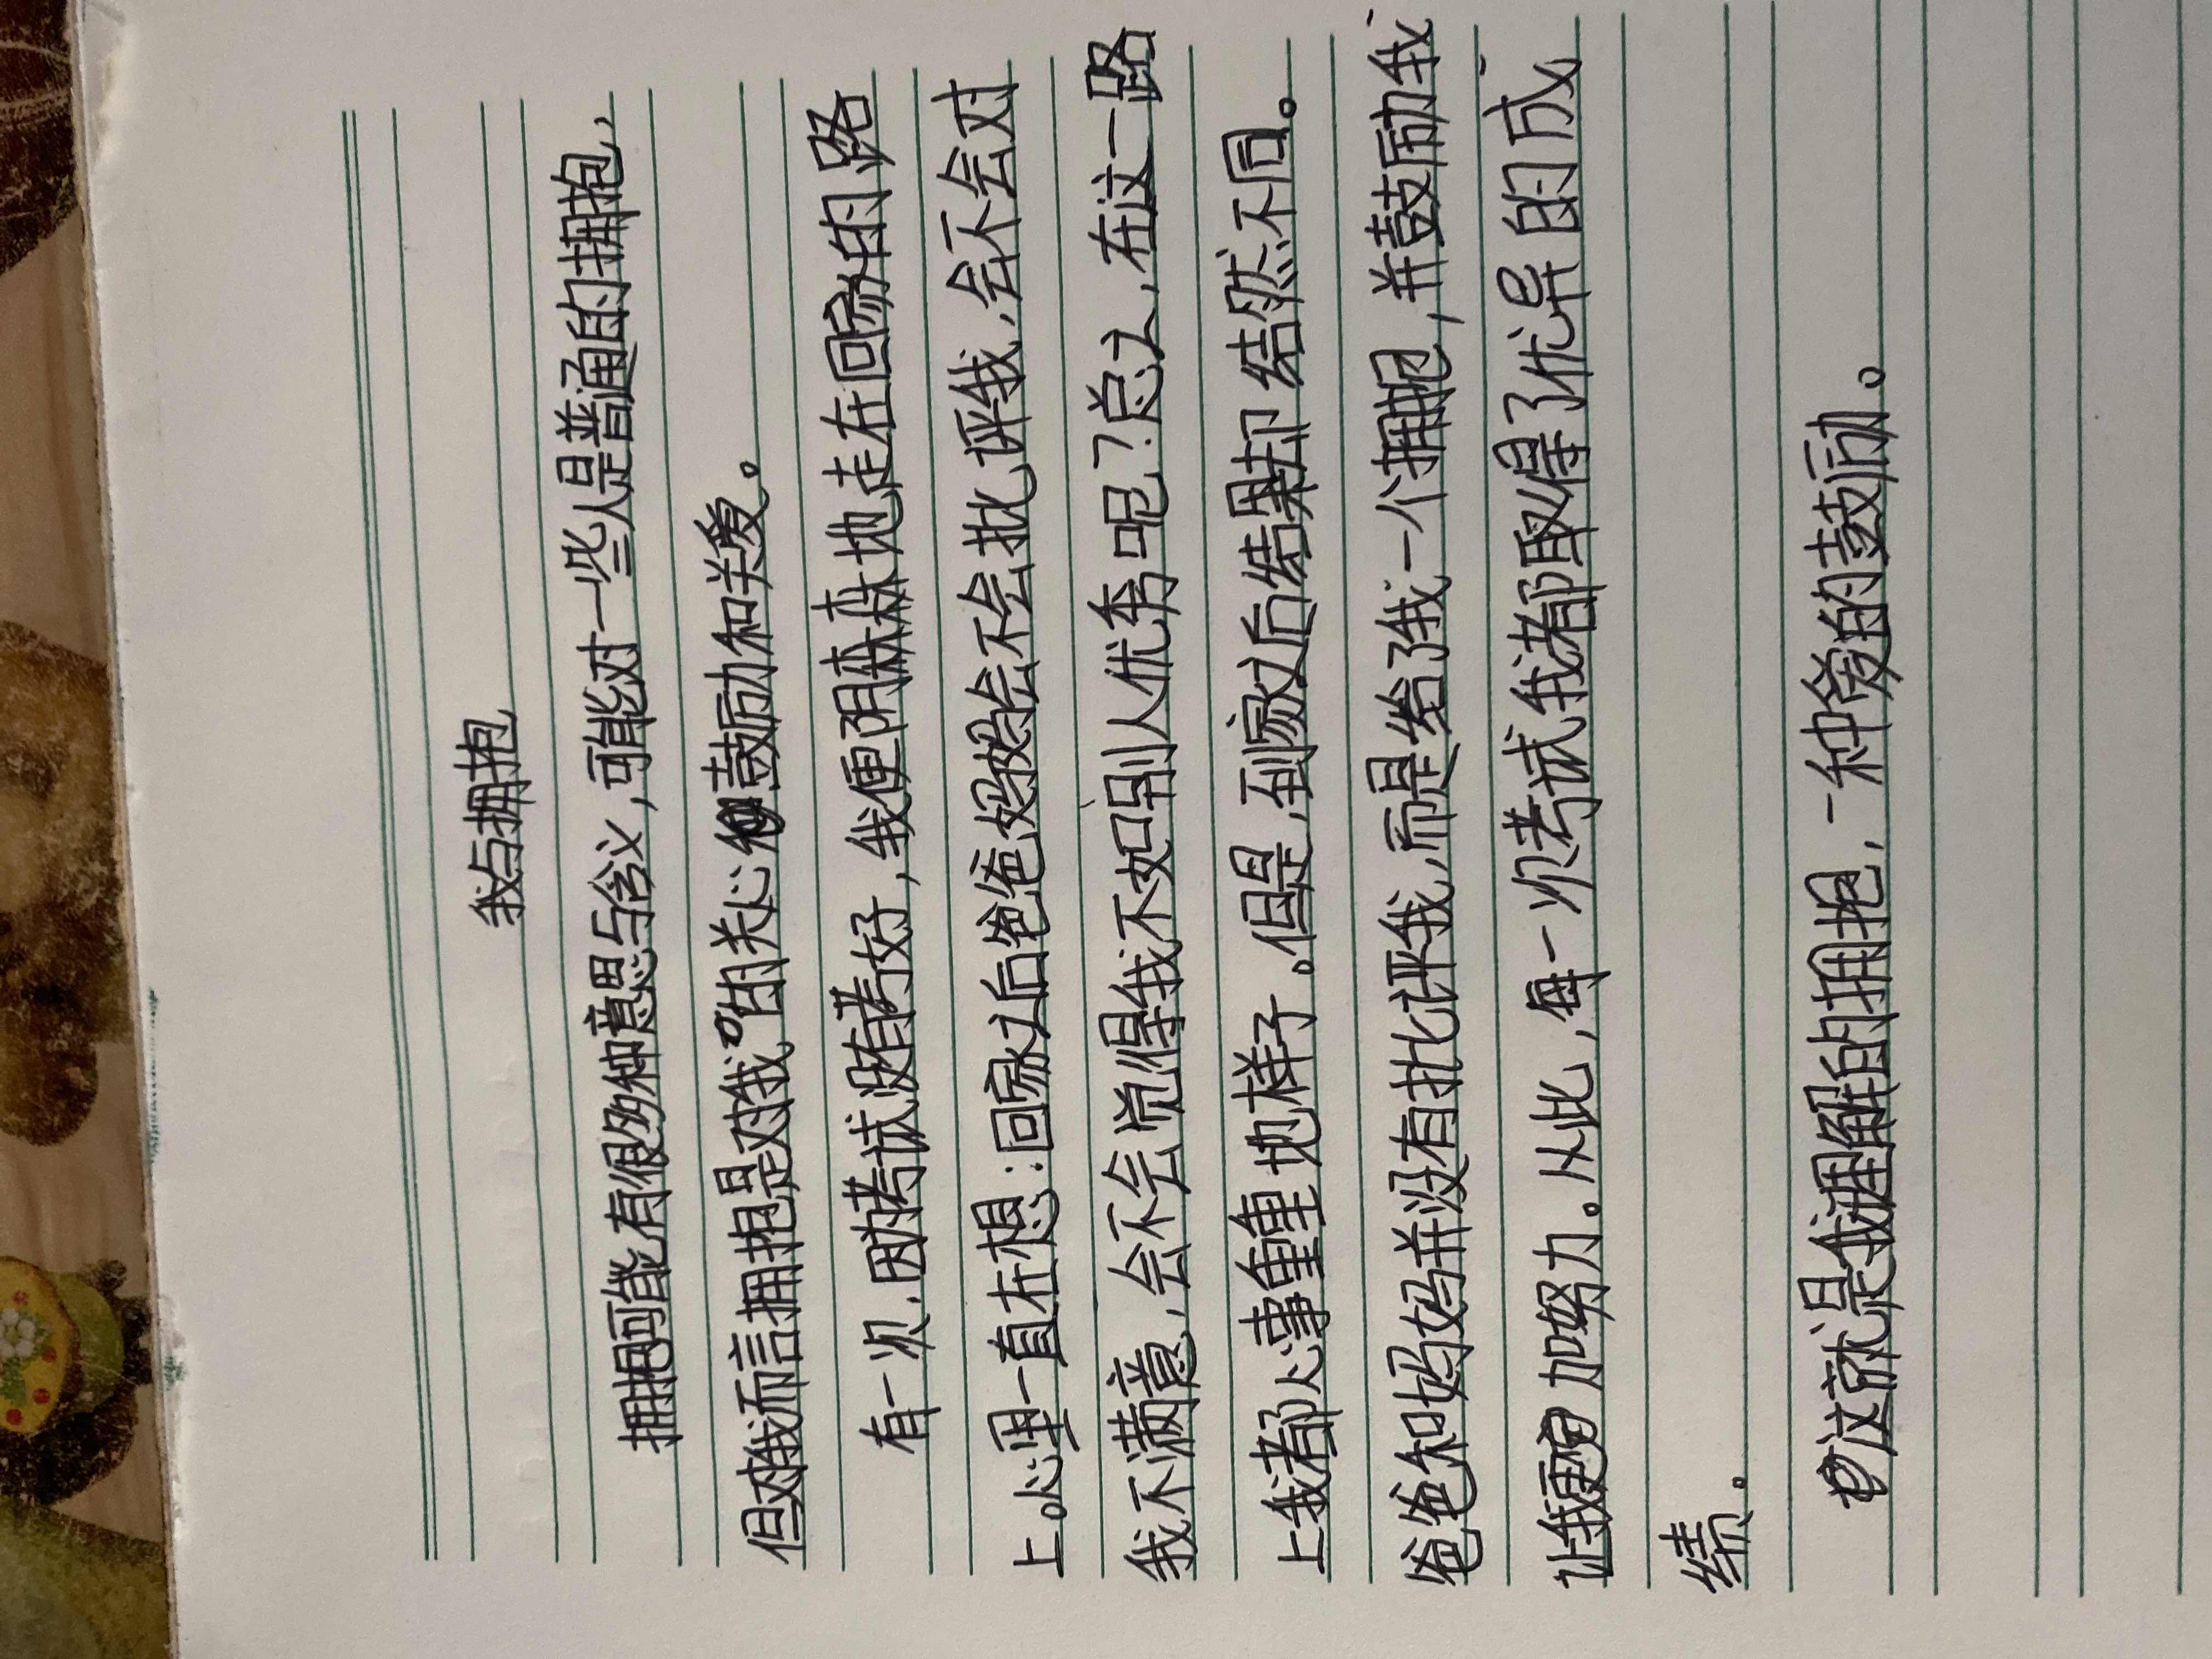 我与拥抱
拥抱可能有很多种意思与含义，可能对一些人是普通的拥抱，
但对我而言拥抱是对我的关心鼓励和关爱。
有一次，因为考试没有考好，我便阴森森地走在回家的路
上。心里一直在想：回家之后爸爸妈妈会不会批评我，会不会对
我不满意，会不会觉得我不如别人优秀呢？总之，在这一路
上我都心事重重地样子。但是，到家之后结果却结然不同。
爸爸和妈妈并没有批评我，而是给了我一个拥抱，并鼓励我
让我更加努力。从此，每一次考试我都取得了优异的成
绩。
这就是我理解的拥抱，一种爱的鼓励。